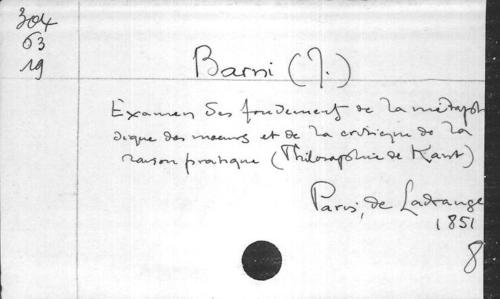 304
63
19
Barni (J.)
Examen des fondements de la métaph
sique des moeurs et de la critique de la
raison pratique (Philosophie de Kant)
Paris, de Ladrange
1851
8